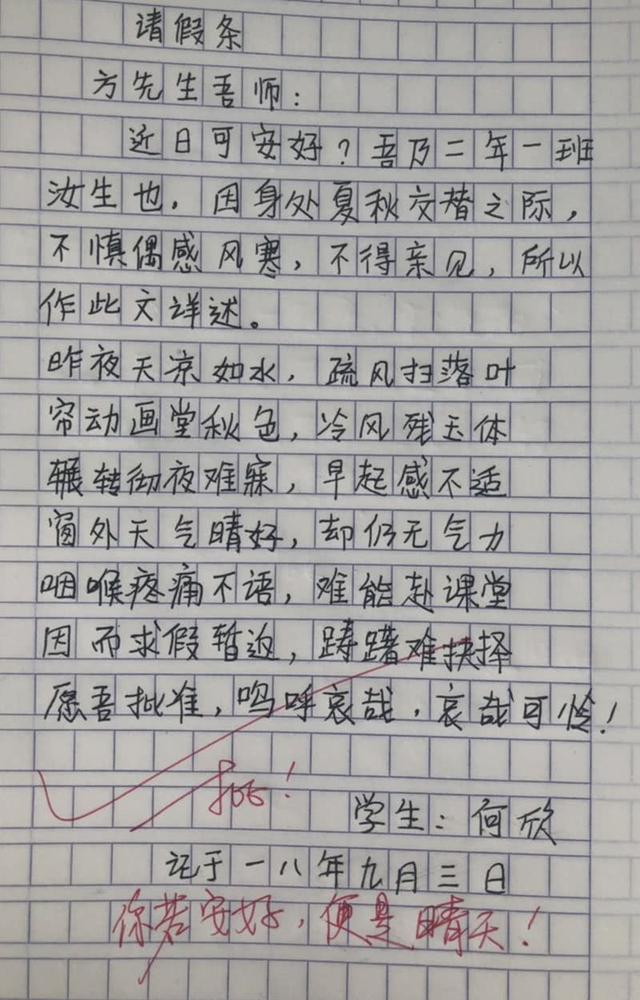 请假条
方先生吾师:
近日可安好?吾乃二年一班
汝生也,因身处夏秋交替之际,
不慎偶感风寒,不得亲见,所以
作此文详述。
昨夜天凉如水,疏风扫落叶
帘动画堂秋色,冷风残玉体
辗转彻夜难寐,早起感不适
窗外天气晴好,却仍无气力
咽喉疼痛不语,难能赴课堂
因而求假暂返,踌躇难抉择
愿吾批准,呜呼哀哉,哀哉可怜!
批!
学生:何欣
记于一八年九月三日
你若安好,便是晴天!